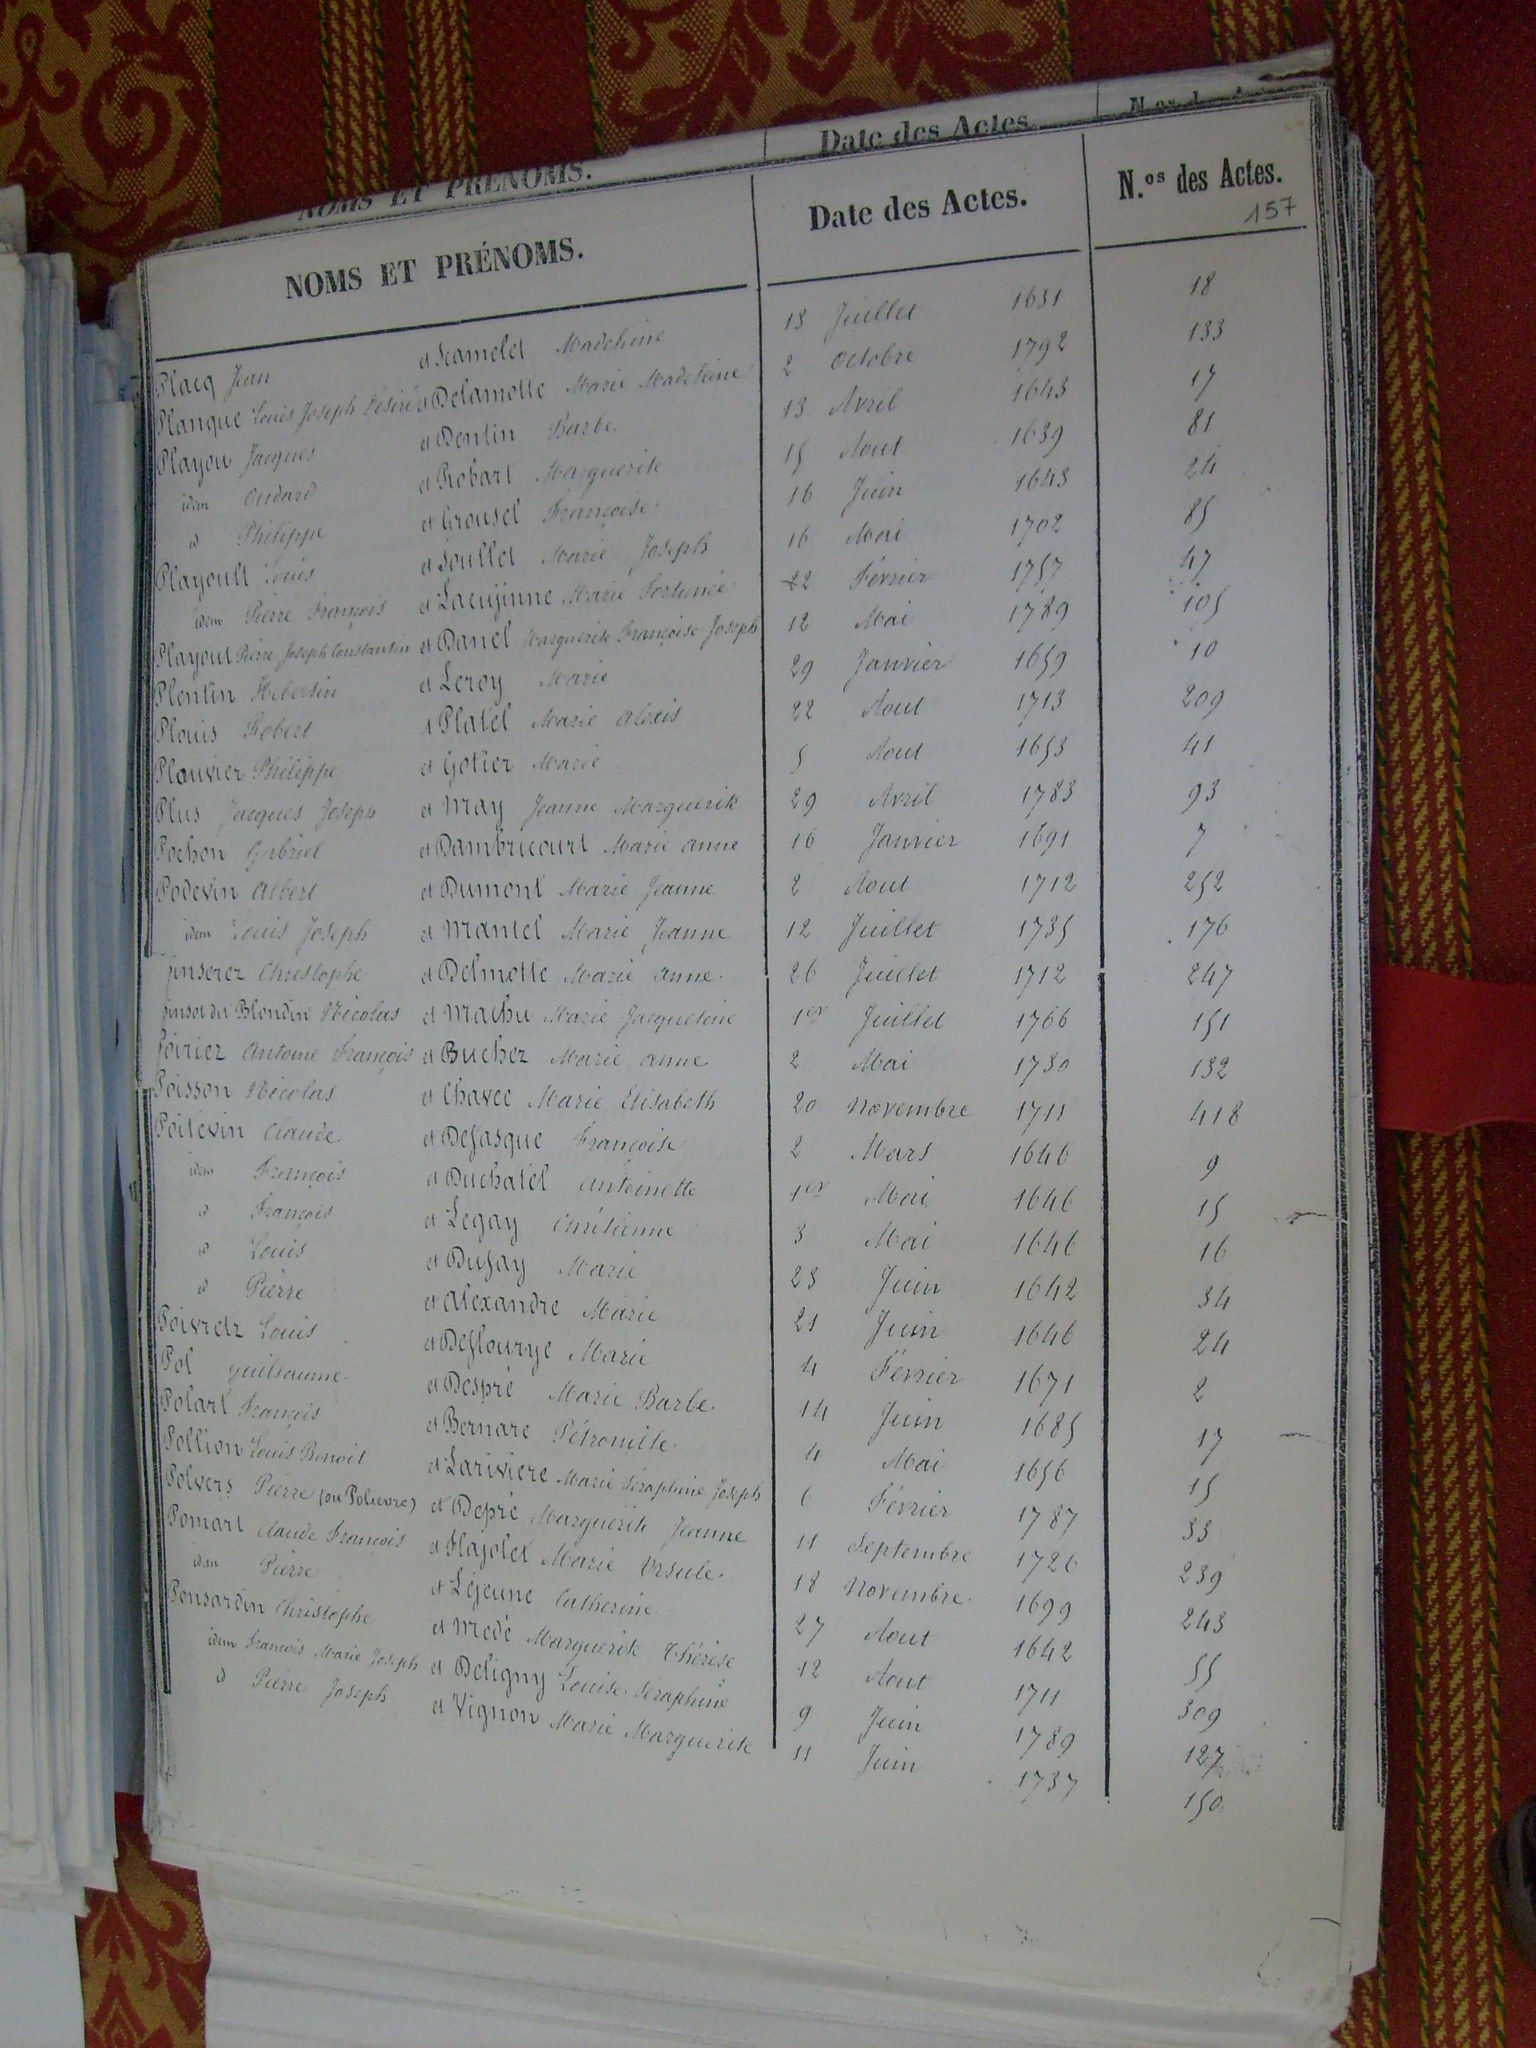 NOMS ET PRÉNOMS. Date des Actes. N.os des Actes.
NOMS ET PRÉNOMS. Date des Actes. N.os des Actes.
157
Placq Jean et Hamelet Madeleine 13 Juillet 1631 18
Planque Louis Joseph Désiré et Delamotte Marie Madeleine 2 Octobre 1792 133
Playou Jacques et Dentin Barbe 13 Avril 1643 17
idem Oudard et Robart Marguerite 15 Aout 1639 81
d Philippe et Grousel Françoise 16 Juin 1643 24
Playoult Louis et Soullet Marie Joseph 16 Mai 1702 85
idem Pierre François et Lacujinne Marie Fortunée 22 Février 1757 47
Playout Pierre Joseph Constantin et Danel Marguerite Françoise Joseph 12 Mai 1789 105
Plentin Hibertin et Leroy Marie 29 Janvier 1659 10
Plouis Robert et Platel Marie Alexis 22 Aout 1713 209
Plauvier Philippe et Gotier Marie 5 Aout 1653 41
Plus Jacques Joseph et May Jeanne Marguerite 29 Avril 1783 93
Pochon Gabriel et Dambricourt Marie Anne 16 Janvier 1691 7
Podevin Albert et Dumont Marie Jeanne 2 Aout 1712 252
idem Louis Joseph et Mantel Marie Jeanne 12 Juillet 1735 176
oinserez Christophe et Delmotte Marie Anne 26 Juillet 1712 247
oinsot dit Blondin Nicolas et Machu Marie Jacqueline 1er Juillet 1766 151
Poirier Antoine François et Buchez Marie Anne 2 Mai 1730 132
Poisson Nicolas et Chavee Marie Elisabeth 20 Novembre 1711 418
Poitevin Claude et Defasque Françoise 2 Mars 1646 9
idem François et Duchatel Antoinette 1er Mai 1646 15
d François et Legay Chrétienne 3 Mai 1646 16
d Louis et Dufay Marie 23 Juin 1642 34
d Pierre et Alexandre Marie 21 Juin 1646 24
Poivretz Louis et Deflourye Marie 4 Février 1671 2
Pol Guillaume et Despré Marie Barbe 14 Juin 1685 17
Polart François et Bernare Pétronille 4 Mai 1656 15
Pollion Louis Benoit et Lariviere Marie Séraphine Joseph 6 Février 1787 33
Polvers Pierre (ou Polievre) et Depré Marguerite Jeanne 11 Septembre 1726 239
Pomart Claude François et Flajolet Marie Ursule 18 Novembre 1699 243
idem Pierre et Lejeune Catherine 27 Aout 1642 55
Ponsardin Christophe et Medé Marguerite Thérèse 12 Aout 1711 309
idem François Marie Joseph et Deligny Louise Seraphine 9 Juin 1789 127
d Pierre Joseph et Vignon Marie Marguerite 11 Juin 1737 150